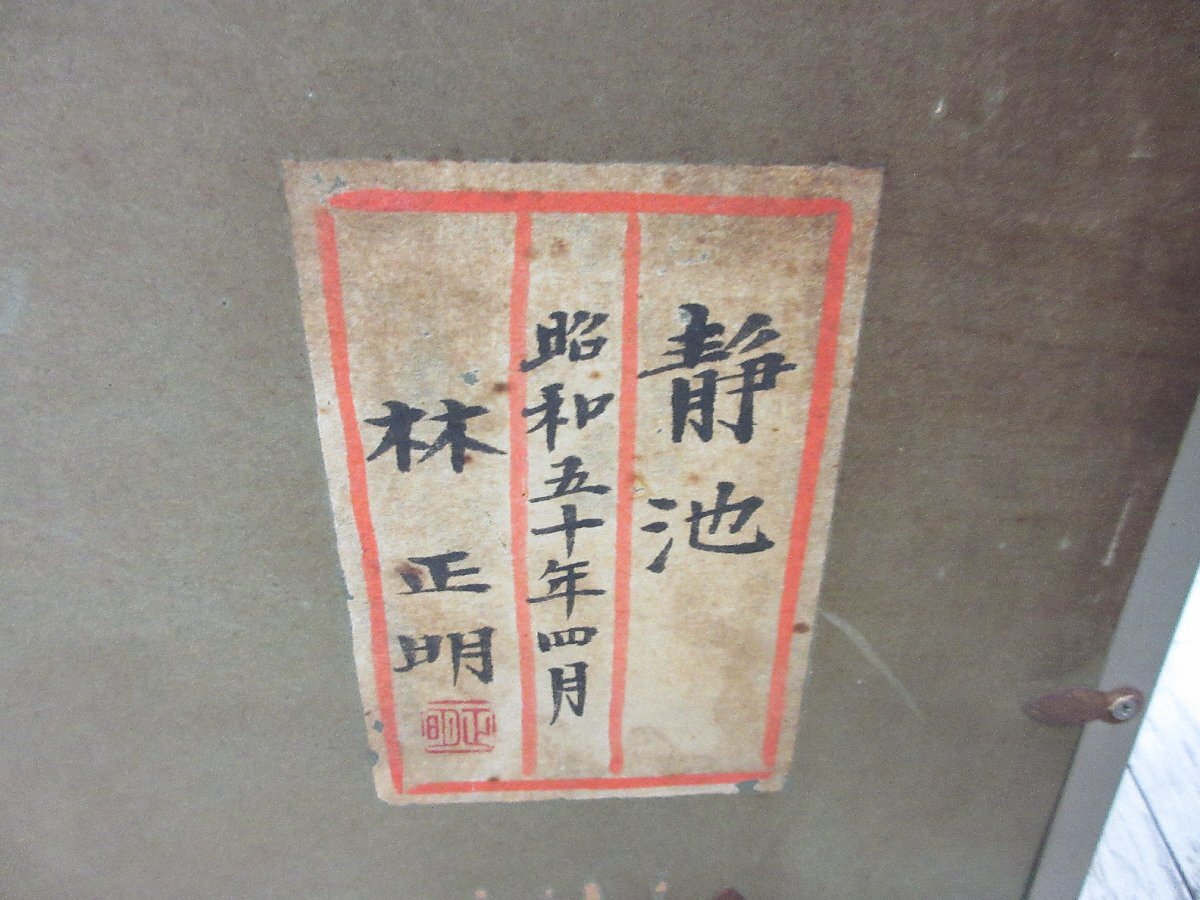 静池
昭和五十年四月
林 正明
正明